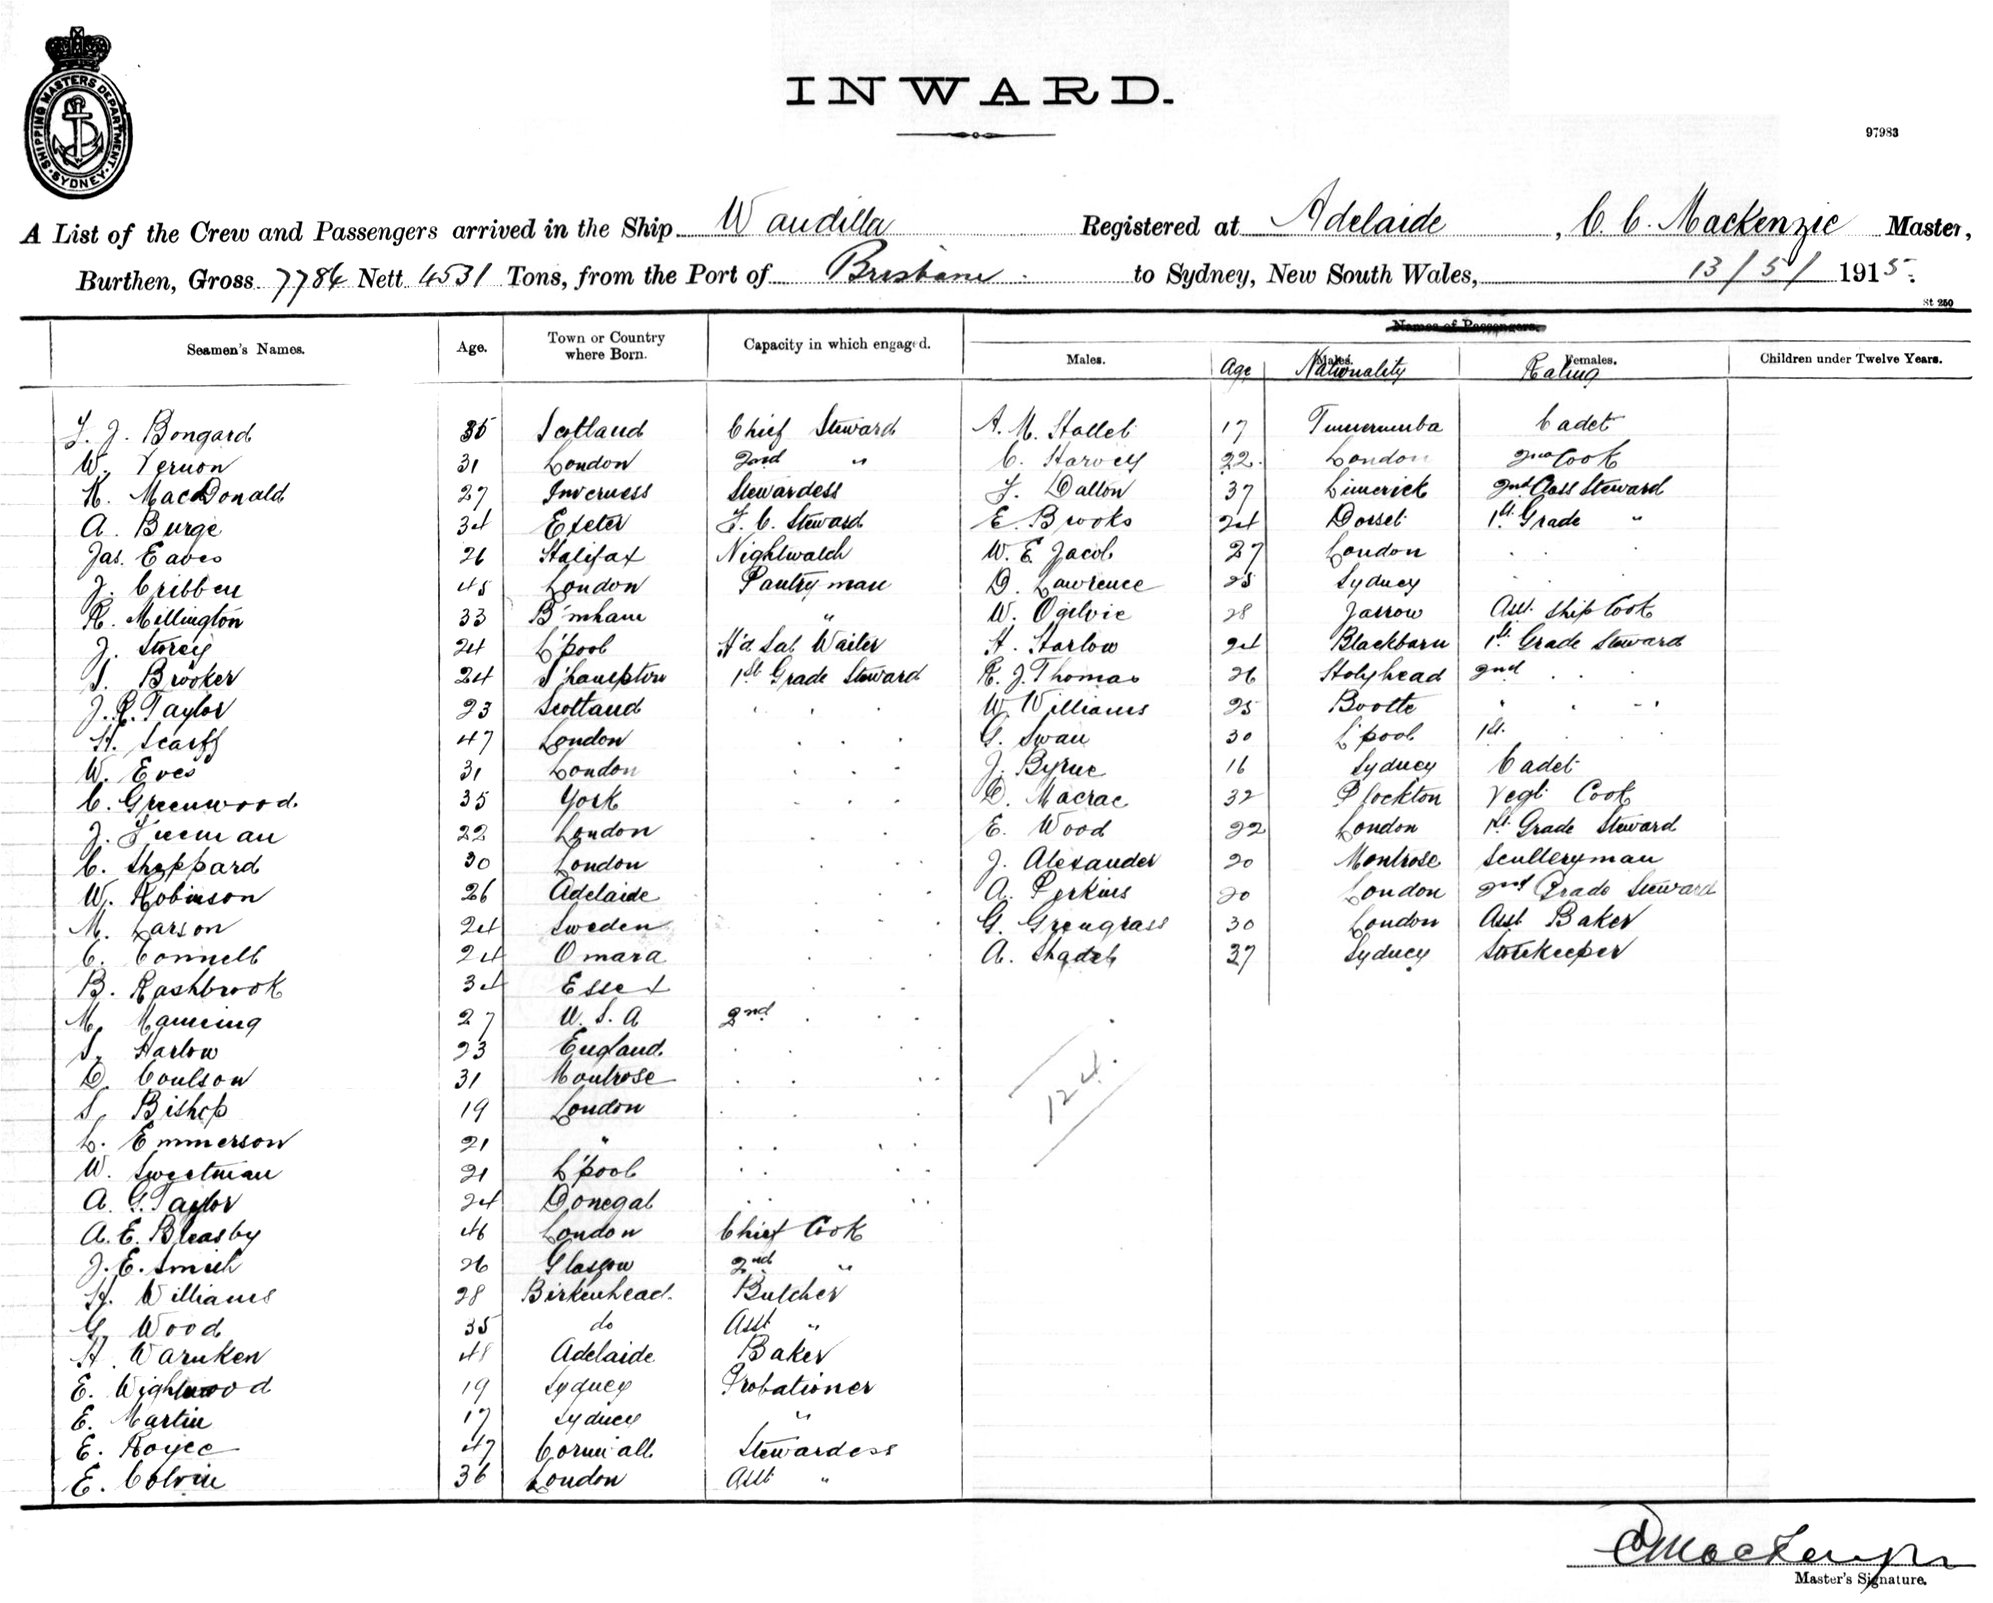 INWARD.
SHIPPING MASTERS DEPARTMENT. SYDNEY.
97983
A List of the Crew and Passengers arrived in the Ship Wandilla Registered at Adelaide, C. C. Mackenzie Master,
Burthen, Gross 7784 Nett 4531 Tons, from the Port of Brisbane to Sydney, New South Wales, 13/5/1915.
St 250
Seamen's Names. Age. Town or Country where Born. Capacity in which engaged. Names of Passengers.
Males. Age Males. Nationality Females. Rating Children under Twelve Years.
F. J. Bongard 35 Scotland Chief Steward A. M. Hallet 17 Tumerumba Cadet
W. Vernon 31 London 2nd " C. Harvey 22 London 2nd Cook
K. MacDonald 27 Inverness Stewardess J. Dalton 37 Limerick 2nd Class Steward
A. Burge 34 Exeter F. C. Steward E. Brooks 24 Dorset 1st Grade "
Jas. Eaves 26 Halifax Nightwatch W. E. Jacob 27 London . .
J. Cribben 45 London Pantryman D. Lawrence 25 Sydney . . .
R. Millington 33 B'mham " W. Ogilvie 28 Jarrow Asst. Ship Cook
J. Storey 24 L'pool H'd Sal Waiter H. Harlow 24 Blackburn 1st Grade Steward
S. Brooker 24 S'hampton 1st Grade Steward R. J. Thomas 26 Holyhead 2nd . . .
J. R. Taylor 23 Scotland . . . W. Williams 25 Bootle " . - .
H. Scarff 47 London . . . G. Swan 30 L'pool 1st. . . .
W. Eves 31 London . . . J. Byrne 16 Sydney Cadet
C. Greenwood. 35 York . . . D. Macrae 32 Plockton Vegt Cook
J. 22 London . . E. Wood 22 London 1st Grade Steward
C. Sheppard 30 London . . . J. Alexander 20 Montrose Sculleryman
W. Robinson 26 Adelaide . . . A. Perkins 20 London 2nd Grade Steward
M. Larson 24 Sweden . . . G. Grengrass 30 London Asst Baker
C. Connell 24 Omara . . . A. 37 Sydney Storekeeper
B. Rashbrook 34 Essex . .
M. Manning 27 U. S. A 2nd . . .
S. Harlow 23 England. . . .
D. Coulson 31 Montrose . . .
S. Bishop 19 London . . .
L. Emmerson 21 " . . . .
W. Sweetman 21 L'pool . . . .
A. G. Taylor 24 Donegal . . . .
A. E. Bleasby 46 London Chief Cook
J. E. Smith 26 Glasgow 2nd "
H. Williams 28 Birkenhead. Butcher
G. Wood 35 do Asst "
H. Warnken 48 Adelaide Baker
E. Wightwood 19 Sydney Probationer
E. Martin 17 Sydney "
E. Royce 47 Cornwall Stewardess
E. Colvin 36 London Asst "
124.
C C MacKenzie
Master's Signature.